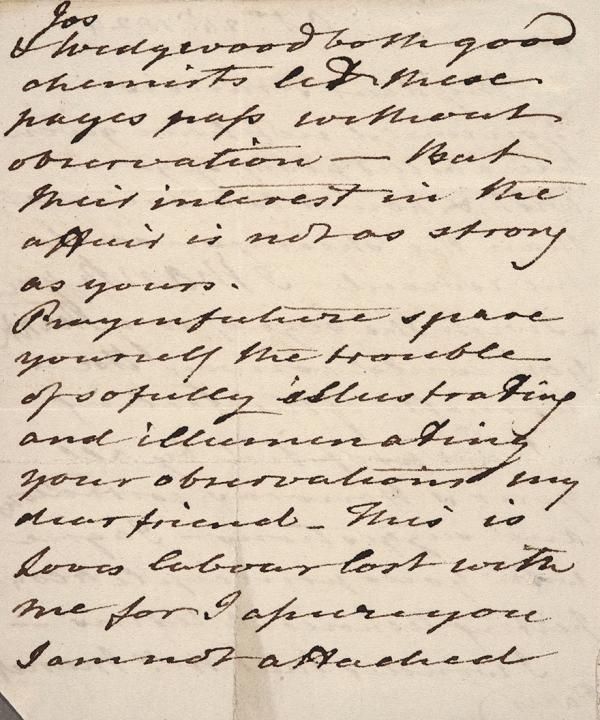 Jos
& Wedgewood both good
chemists let these
pages pass without
observation — But
their interest in the
affair is not as strong
as yours.
Pray in future spare
yourself the trouble
of so fully illustrating
and illuminating
your observations my
dear friend - This is
Loves labour lost with
me for I assure you
I am not attached